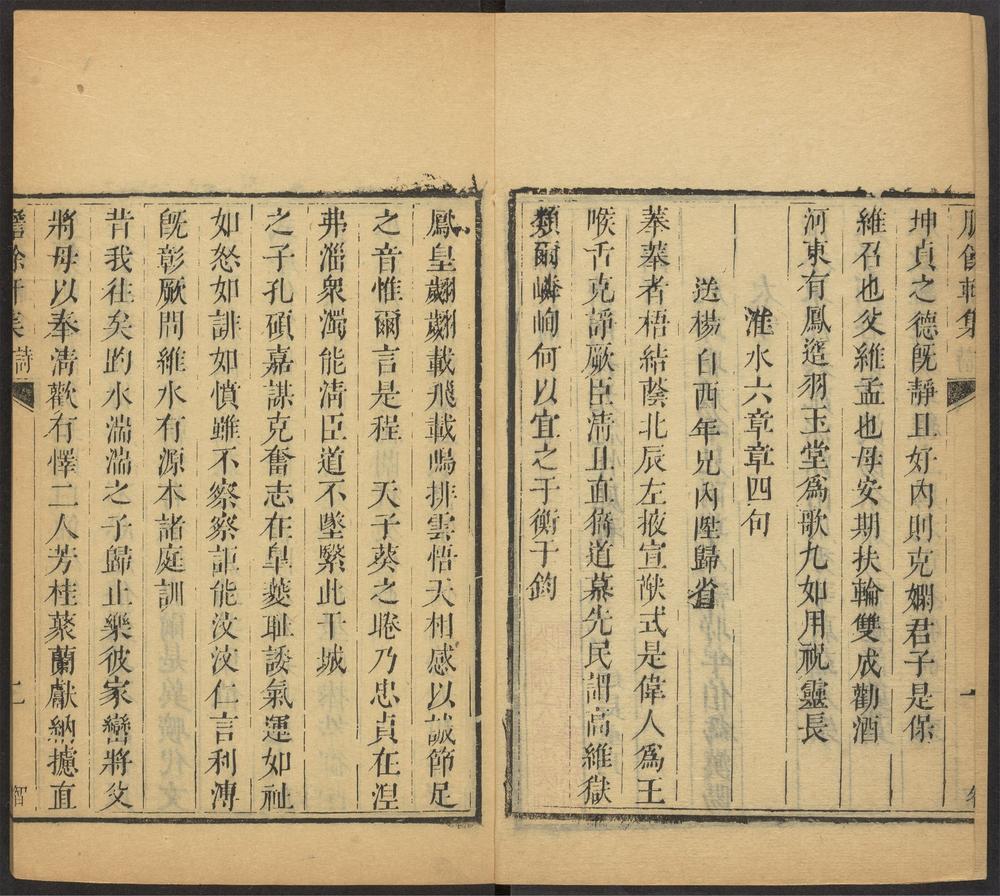 坤貞之德旣靜且好內則克嫻君子是保
維召也父維孟也母安期扶輪雙成勸酒
河東有鳳遥羽玉堂爲歌九如用祝靈長
淮水六章章四句
送楊自西年兄內陞歸省
菶菶者梧結蔭北辰左掖宣猷式是偉人爲王
喉舌克靜厥臣淸且直猗道慕先民謂高維嶽
類爾嶙峋何以宜之于衡于鈞
鳳皇翽翽載飛載鳴排雲悟天相感以誠節足
之音惟爾言是程 天子葵之睠乃忠貞在湼
弗淄衆濁能淸臣道不墜繄此干城
之子孔碩嘉謀克奮志在臯夔恥諉氣運如祉
如怒如誹如憤雖不察察詎能汶汶仁言利溥
旣彰厥問維水有源本諸庭訓
昔我往矣趵水湍湍之子歸止樂彼家巒將父
將母以奉淸歡有懌二人芳桂蘂蘭獻納攄直
詩